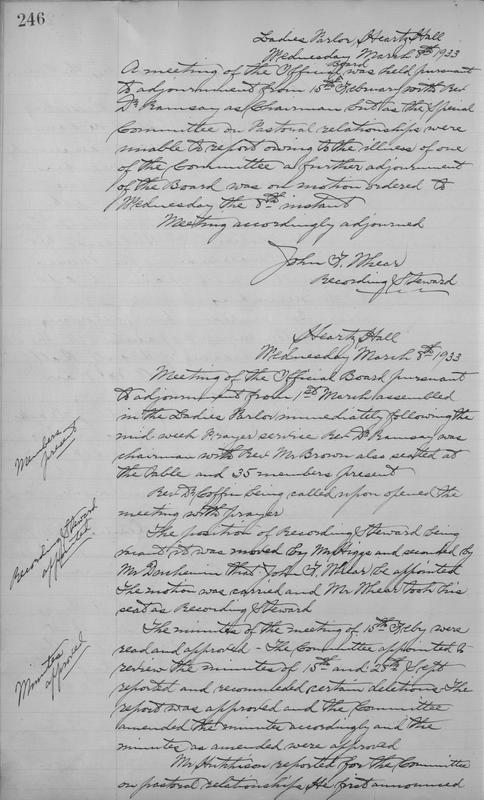 246
Ladies Parlor, Heartz Hall
Wednesday March 8th 1933
A meeting of the Official Board was held pursuant
to adjournment from 15th February with Rev
Dr Ramsay as Chairman but as the Special
Committee on Pastoral relationships were
unable to report owing to the illness of one
of the Committee a further adjournment
of the Board was on motion ordered to
Wednesday the 8th instant
Meeting accordingly adjourned
John F. Whear
Recording Steward
Heartz Hall
Wednesday March 8th 1933
Meeting of the Official Board pursuant
to adjournment from 1st March assembled
in the Ladies Parlor immediately following the
mid week Prayer service Rev. Dr Ramsay was
chairman with Rev Mr Brown also seated at
the table and 35 members present
Members
present
Rev. Dr Coffin being called upon opened the
meeting with prayer
Recording Steward
appointed
The position of Recording Steward being
vacant it was moved by Mr Higgs and seconded by
Mr that John F. Whear be appointed
The motion was carried and Mr Whear took his
seat as Recording Steward
Minutes
approved
The minutes of the meeting of 15th Feby were
read and approved - The Committee appointed to
review the minutes of 15th and 28th Sept
reported and recommended certain deletions. The
report was approved and the Committee
amended the minutes accordingly and the
minutes as amended were approved
Mr Hutchison reported for the Committee
on pastoral relationships. He first announced